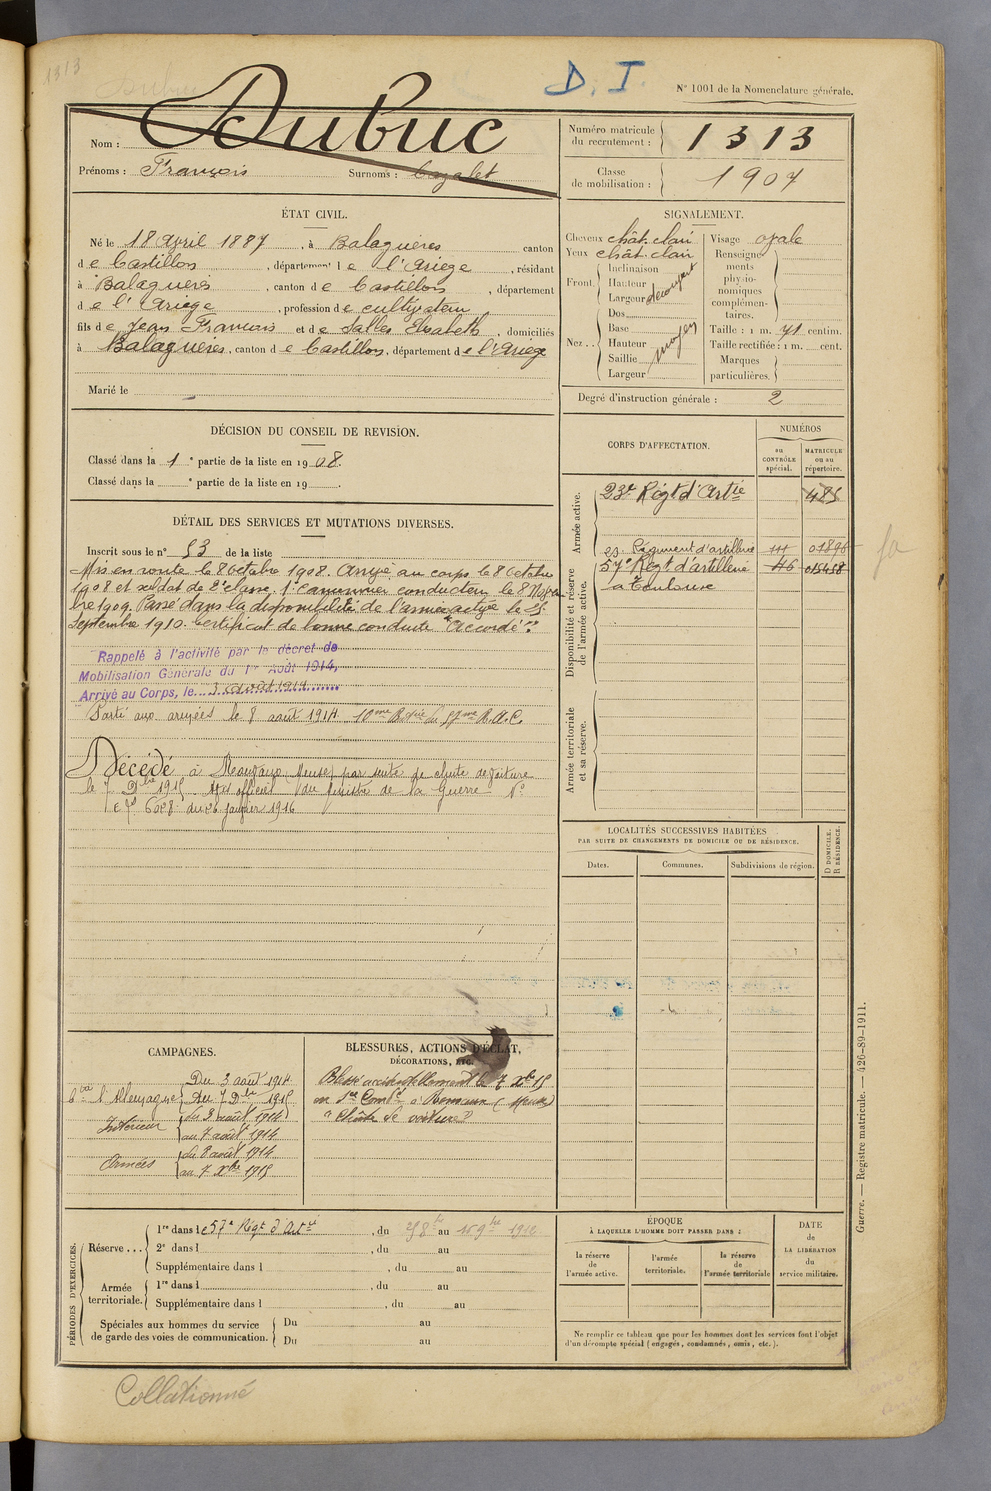 1313
D. I.
N° 1001 de la Nomenclature générale.
Nom : Dubuc
Prénoms : François Surnoms : Cazalet
Numéro matricule du recrutement : 1313
Classe de mobilisation : 1907
ÉTAT CIVIL.
Né le 18 Avril 1887, à Balaguères canton
de Castillon, département de l'Ariège, résidant
à Balaguères, canton de Castillon, département
de l'Ariège, profession de cultivateur
fils de Jean François et de Salles Elisabeth, domiciliés
à Balaguères, canton de Castillon, département de l'Ariège
Marié le
SIGNALEMENT.
Cheveux chât. clair
Yeux chât. clair
Front. Inclinaison
Hauteur
Largeur découvert
Nez.. Dos
Base
Hauteur moyen
Saillie
Largeur
Visage ovale
Renseignements physionomiques complémentaires.
Taille : 1 m. 71 centim.
Taille rectifiée : 1 m. cent.
Marques particulières.
Degré d'instruction générale : 2
DÉCISION DU CONSEIL DE REVISION.
Classé dans la 1e partie de la liste en 1908.
Classé dans la e partie de la liste en 19 .
CORPS D'AFFECTATION.
NUMÉROS
au CONTRÔLE spécial.
MATRICULE ou au répertoire.
Armée active.
23e Régt d'Artie 485
Disponibilité et réserve de l'armée active.
Régiment d'artillerie 111 01896
57e Régt d'artillerie 46
à Toulouse
Armée territoriale et sa réserve.
DÉTAIL DES SERVICES ET MUTATIONS DIVERSES.
Inscrit sous le n° 53 de la liste
Mis en route le 8 Octobre 1908. Arrivé au corps le 8 Octobre
1908 et soldat de 2e classe. 1r Canonnier conducteur le 8 Novem-
bre 1909. Passé dans la disponibilité de l'armée active le 25
Septembre 1910. Certificat de bonne conduite "Accordé".
Rappelé à l'activité par le décret de
Mobilisation Générale du 1er Août 1914,
Arrivé au Corps, le 3 août 1914
Parti aux armées le 8 août 1914 10me Batterie du 57me R.A.C.
Décédé à Meuse par suite de chute de voiture
le 7 Xbre 1915 Avis officiel du Ministre de la Guerre N°
6028 du 26 janvier 1916
LOCALITÉS SUCCESSIVES HABITÉES
PAR SUITE DE CHANGEMENTS DE DOMICILE OU DE RÉSIDENCE.
Dates.
Communes.
Subdivisions de région.
D DOMICILE.
R RÉSIDENCE.
CAMPAGNES.
Du 3 août 1914
l'Allemagne Au 7 Dbre 1915
Intérieur du 3 août 1914
au 7 août 1914
Armées du 8 août 1914
au 7 Xbre 1915
BLESSURES, ACTIONS D'ÉCLAT,
DÉCORATIONS, ETC.
Blessé accidentellement le 7 Xbre 15
(Meuse)
"Chûte de voiture"
PÉRIODES D'EXERCICES.
Réserve... 1re dans le 57e Régt d'Artie, du au 1912
2e dans l , du au
Supplémentaire dans l , du au
Armée territoriale. 1re dans l , du au
Supplémentaire dans l , du au
Spéciales aux hommes du service de garde des voies de communication. Du au
Du au
ÉPOQUE
À LAQUELLE L'HOMME DOIT PASSER DANS :
la réserve de l'armée active.
l'armée territoriale.
la réserve de l'armée territoriale
DATE de LA LIBÉRATION du service militaire.
Ne remplir ce tableau que pour les hommes dont les services font l'objet
d'un décompte spécial (engagés, condamnés, omis, etc.).
Guerre. — Registre matricule. — 426-89-1911.
Collationné